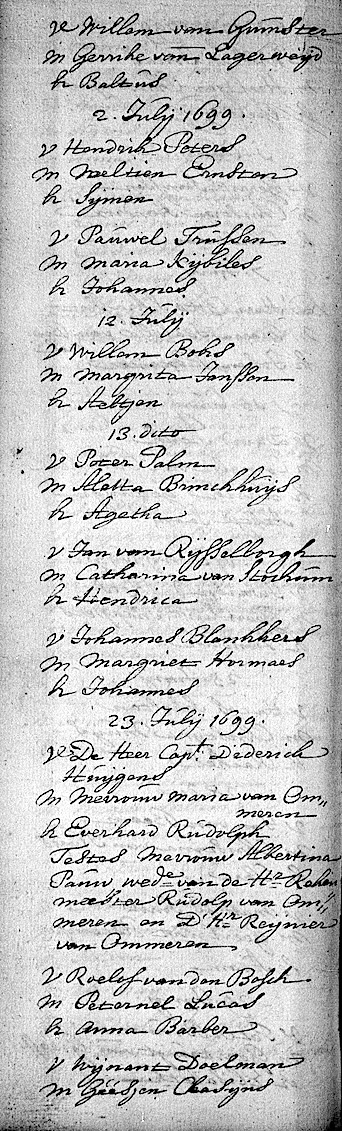 v Willem van Gunster
m Gerrike van Lagerweijd
k Baltus
2. Julij 1699.
v Hendrik Peters
m Neeltien Ernsten
k Sijmen
v Pauwel Trussen
m maria Kijbiles
k Johannes
12. Julij
v Willem Bohs
m margrita Janssen
k Aeltjen
13. dito
v Peter Palm
m Aletta Brinckhuijs
k Agetha
v Jan van Rijsselborgh
m Catharina van Stockum
k Hendrica
v Johannes Blankhers
m Margriet Hermaes
k Johannes
23. Julij 1699.
v De Heer Capt. Dederick
Huijgens
m Mevrouw maria van Om„
meren
k Everhard Rudolph
Testes Mevrouw Albertina
Pauw, wede van de Hr Reken
meester Rudolp van Om„
meren en D'Hr Reijnier
van Ommeren
v Roelof van den Bosch
m Peternel Lucas
k Anna Barber
v Wijnant Doelman
m Geesjen